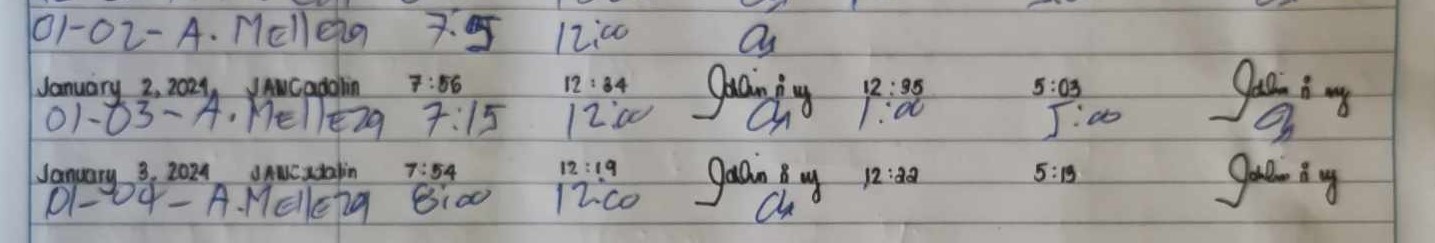 01-02- A. Melleza 7:5 12:00
January 2, 2024 JANCadalin 7:56 12:34 12:35 5:03
01-03- A. Melleza 7:15 12:00 1:00 5:00
January 3, 2024 JANCadalin 7:54 12:19 12:22 5:19
01-04- A. Melleza 8:00 12:00